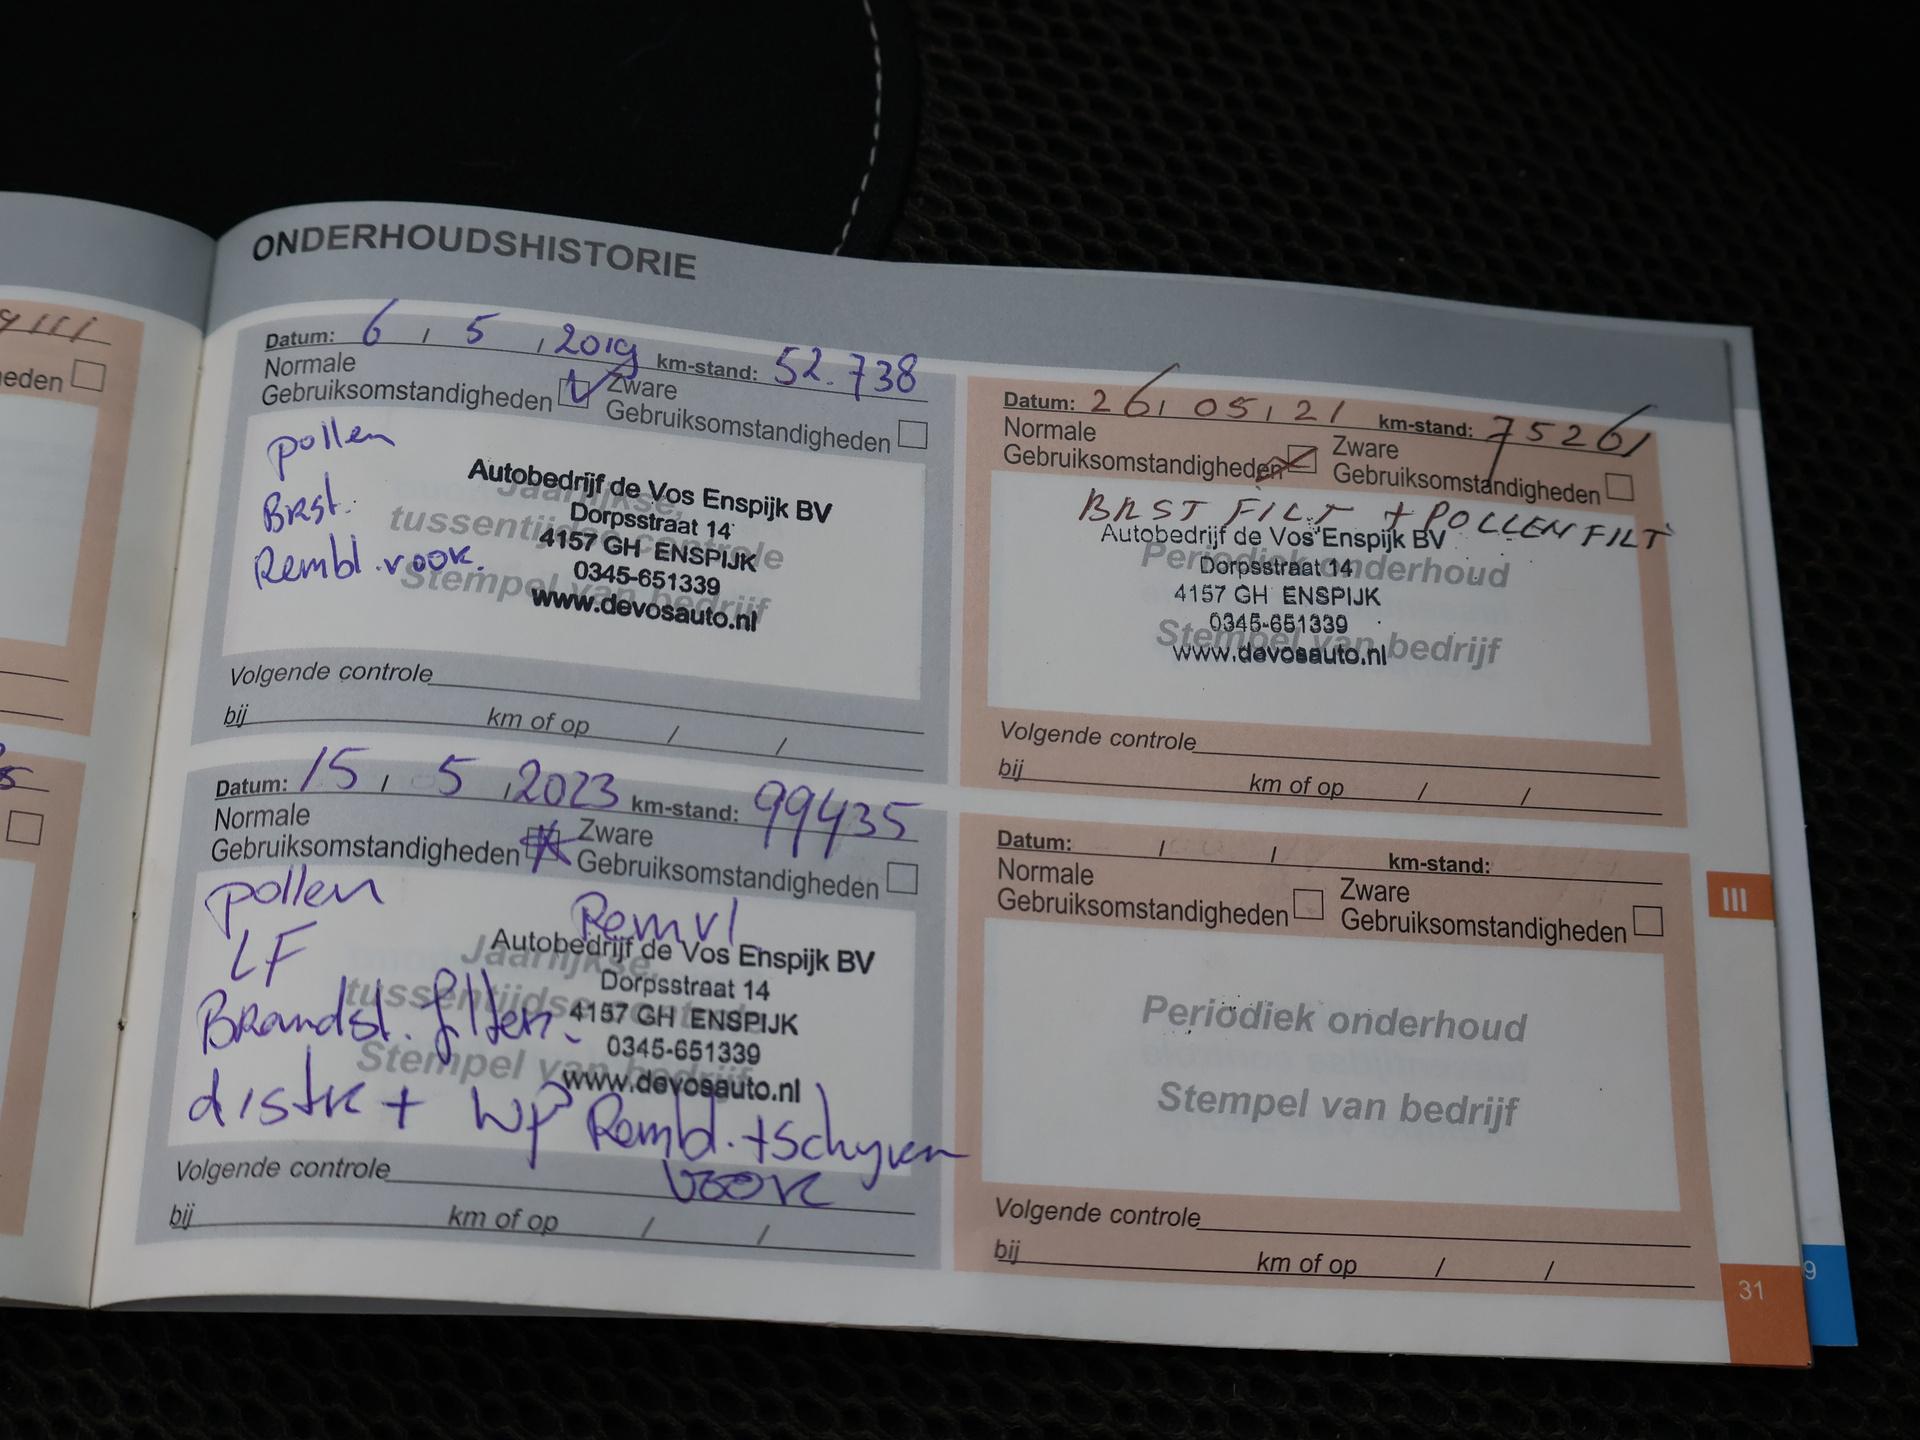 ONDERHOUDSHISTORIE
eden
Datum: 6 / 5 / 2019 km-stand: 52.738
Normale
Gebruiksomstandigheden
Zware
Gebruiksomstandigheden
pollen
Brst.
Rembl. voor.
Jaarlijkse,
tussentijdse controle
Stempel van bedrijf
Autobedrijf de Vos Enspijk BV
Dorpsstraat 14
4157 GH ENSPIJK
0345-651339
www.devosauto.nl
Volgende controle
bij km of op / /
Datum: 26 / 05 / 21 km-stand: 75261
Normale
Gebruiksomstandigheden
Zware
Gebruiksomstandigheden
BRST FILT + POLLENFILT
Periodiek onderhoud
Stempel van bedrijf
Autobedrijf de Vos Enspijk BV
Dorpsstraat 14
4157 GH ENSPIJK
0345-651339
www.devosauto.nl
Volgende controle
bij km of op / /
Datum: 15 / 5 / 2023 km-stand: 99435
Normale
Gebruiksomstandigheden
Zware
Gebruiksomstandigheden
pollen Remvl
LF
Brandst. filter.
distr + WP Rembl. + Schyven
voor
Jaarlijkse,
tussentijdse
Stempel van bedrijf
Autobedrijf de Vos Enspijk BV
Dorpsstraat 14
4157 GH ENSPIJK
0345-651339
www.devosauto.nl
Volgende controle
bij km of op / /
Datum: / / km-stand:
Normale
Gebruiksomstandigheden
Zware
Gebruiksomstandigheden
Periodiek onderhoud
Stempel van bedrijf
Volgende controle
bij km of op / /
III
31
9